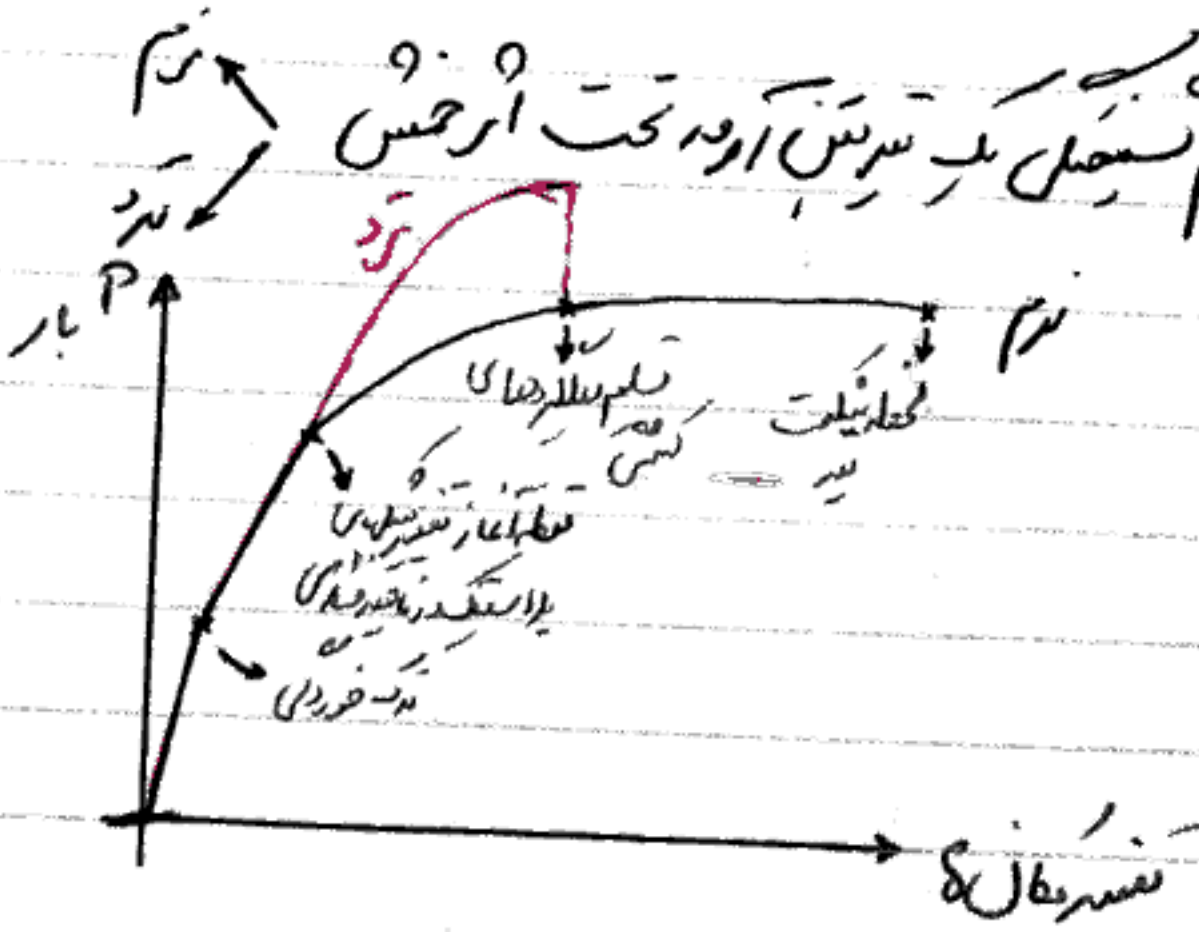 نرم
شکستگی یک تیر بتن آرمه تحت اثر خمش
ترد
ترد
P
بار
نرم
تسلیم میلگردهای
کششی
لحظه شکست
تیر
نقطه آغاز تغییر شکلهای
پلاستیک در ناحیه فشاری
ترک خوردگی
تغییر مکان δ